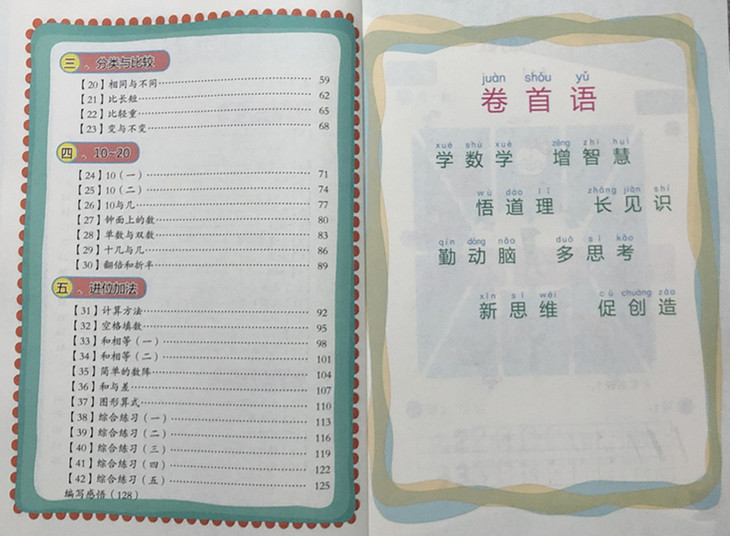 三、分类与比较
【20】相同与不同 59
【21】比长短 62
【22】比轻重 65
【23】变与不变 68
四、10~20
【24】10（一） 71
【25】10（二） 74
【26】10与几 77
【27】钟面上的数 80
【28】单数与双数 83
【29】十几与几 86
【30】翻倍和折半 89
五、进位加法
【31】计算方法 92
【32】空格填数 95
【33】和相等（一） 98
【34】和相等（二） 101
【35】简单的数阵 104
【36】和与差 107
【37】图形算式 110
【38】综合练习（一） 113
【39】综合练习（二） 116
【40】综合练习（三） 119
【41】综合练习（四） 122
【42】综合练习（五） 125
编写感悟（128）
juàn shǒu yǔ
卷首语
xué shù xué zēng zhì huì
学数学 增智慧
wù dào lǐ zhǎng jiàn shí
悟道理 长见识
qín dòng nǎo duō sī kǎo
勤动脑 多思考
xīn sī wéi cù chuàng zào
新思维 促创造